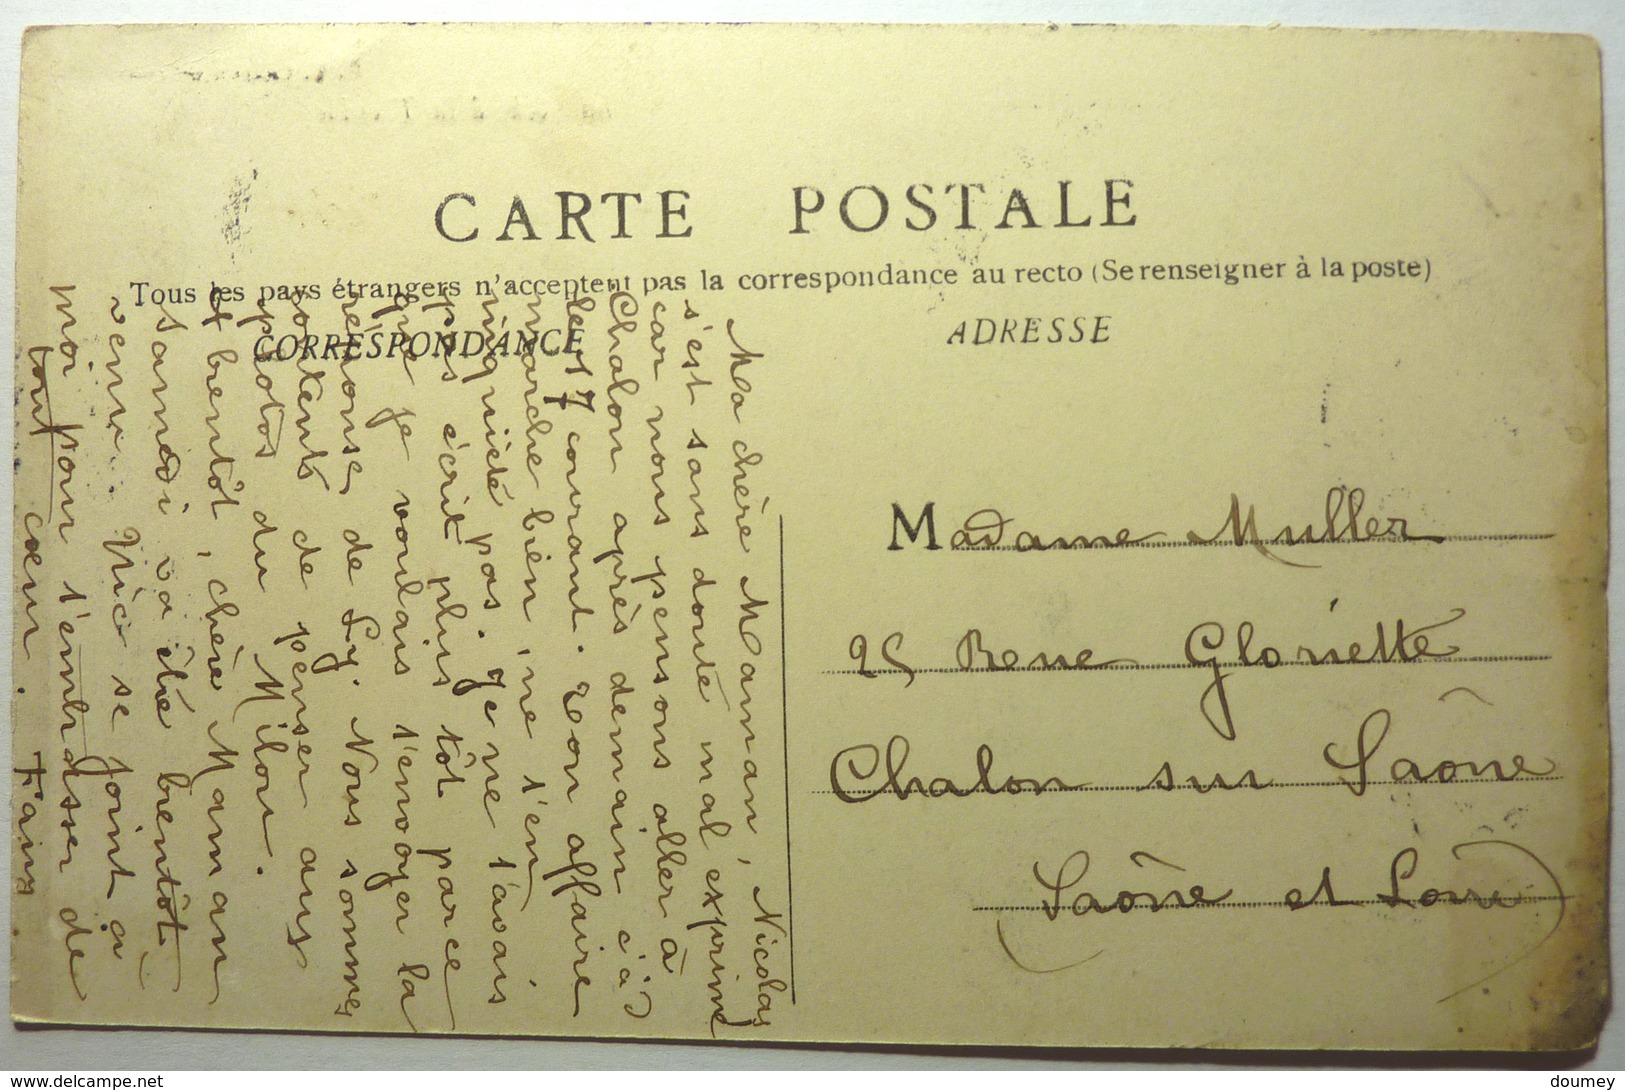 CARTE POSTALE
Tous les pays étrangers n'acceptent pas la correspondance au recto (Se renseigner à la poste)
CORRESPONDANCE
ADRESSE
Ma chère Maman, Nicolas
s'est sans doute mal exprimé
car nous pensons aller à
Chalon après demain c'à d
le 17 courant. Ton affaire
marche bien, ne t'en
inquiète pas. Je ne t'avais
pas écrit plus tôt parce
que je voulais t'envoyer la
réponse de Ly. Nous sommes
contents de penser aux
photos du Milou.
et bientôt, chère Maman
samedi va être bientôt
venu. Nic se joint à
moi pour t'embrasser de
tout cœur.
Madame Muller
25 Rue Gloriette
Chalon sur Saône
(Saône et Loire)
delcampe.net
doumey